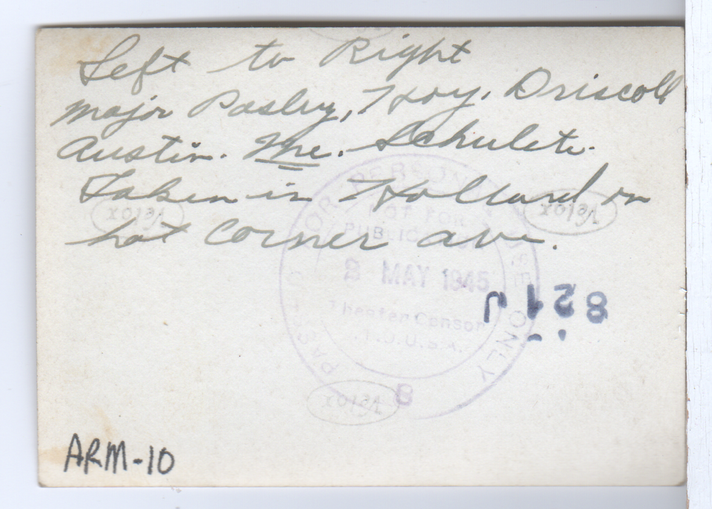 Left to Right
Major Pasley, Hoy, Driscoll
Austin. Me. Schulete.
Taken in Holland on
hot Corner ave.
PASSED FOR PERSONAL USE ONLY
NOT FOR
PUBLIC
8 MAY 1945
Theater Censor
E.T.O.U.S.A.
8
821J
ARM-10